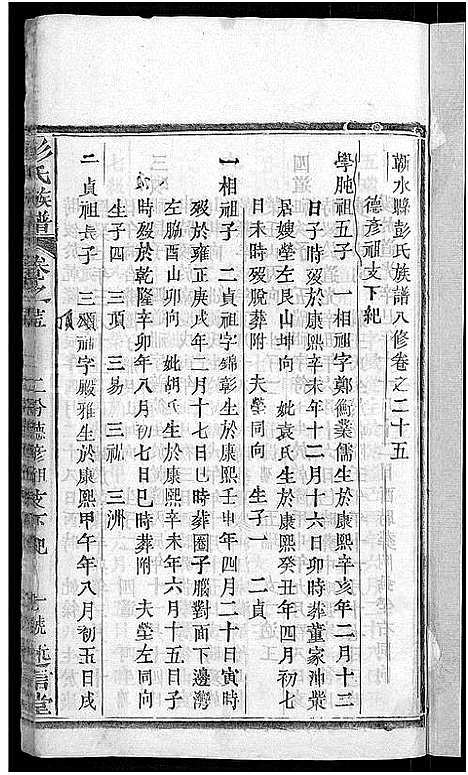 蘄水縣彭氏族譜八修卷之二十五
德彥祖支下紀
學肫祖五子 一相祖字鄭衡業儒生於康熙辛亥年二月十三
日子時歿於康熙辛未年十二月十六日卯時葬董家沖柴
居嫂塋左艮山坤向 妣袁氏生於康熙癸丑年四月初七
日未時歿脫葬附 夫塋同向 生子一 二貞
一相祖子 二貞祖字錦彰生於康熙壬申年四月二十日寅時
歿於雍正庚戌年二月十七日巳時葬圈子腦對面下邊灣
左腦酉山卯向 妣胡氏生於康熙辛未年六月十五日子
時歿於乾隆辛卯年八月初七日巳時葬附 夫塋左同向
生子四 三項 三易 三祉 三洲
二貞祖長子 三頌祖字殿雅生於康熙甲午年八月初五日戌
頂
彭氏族譜 卷之 二分德彥祖支下紀 述信堂